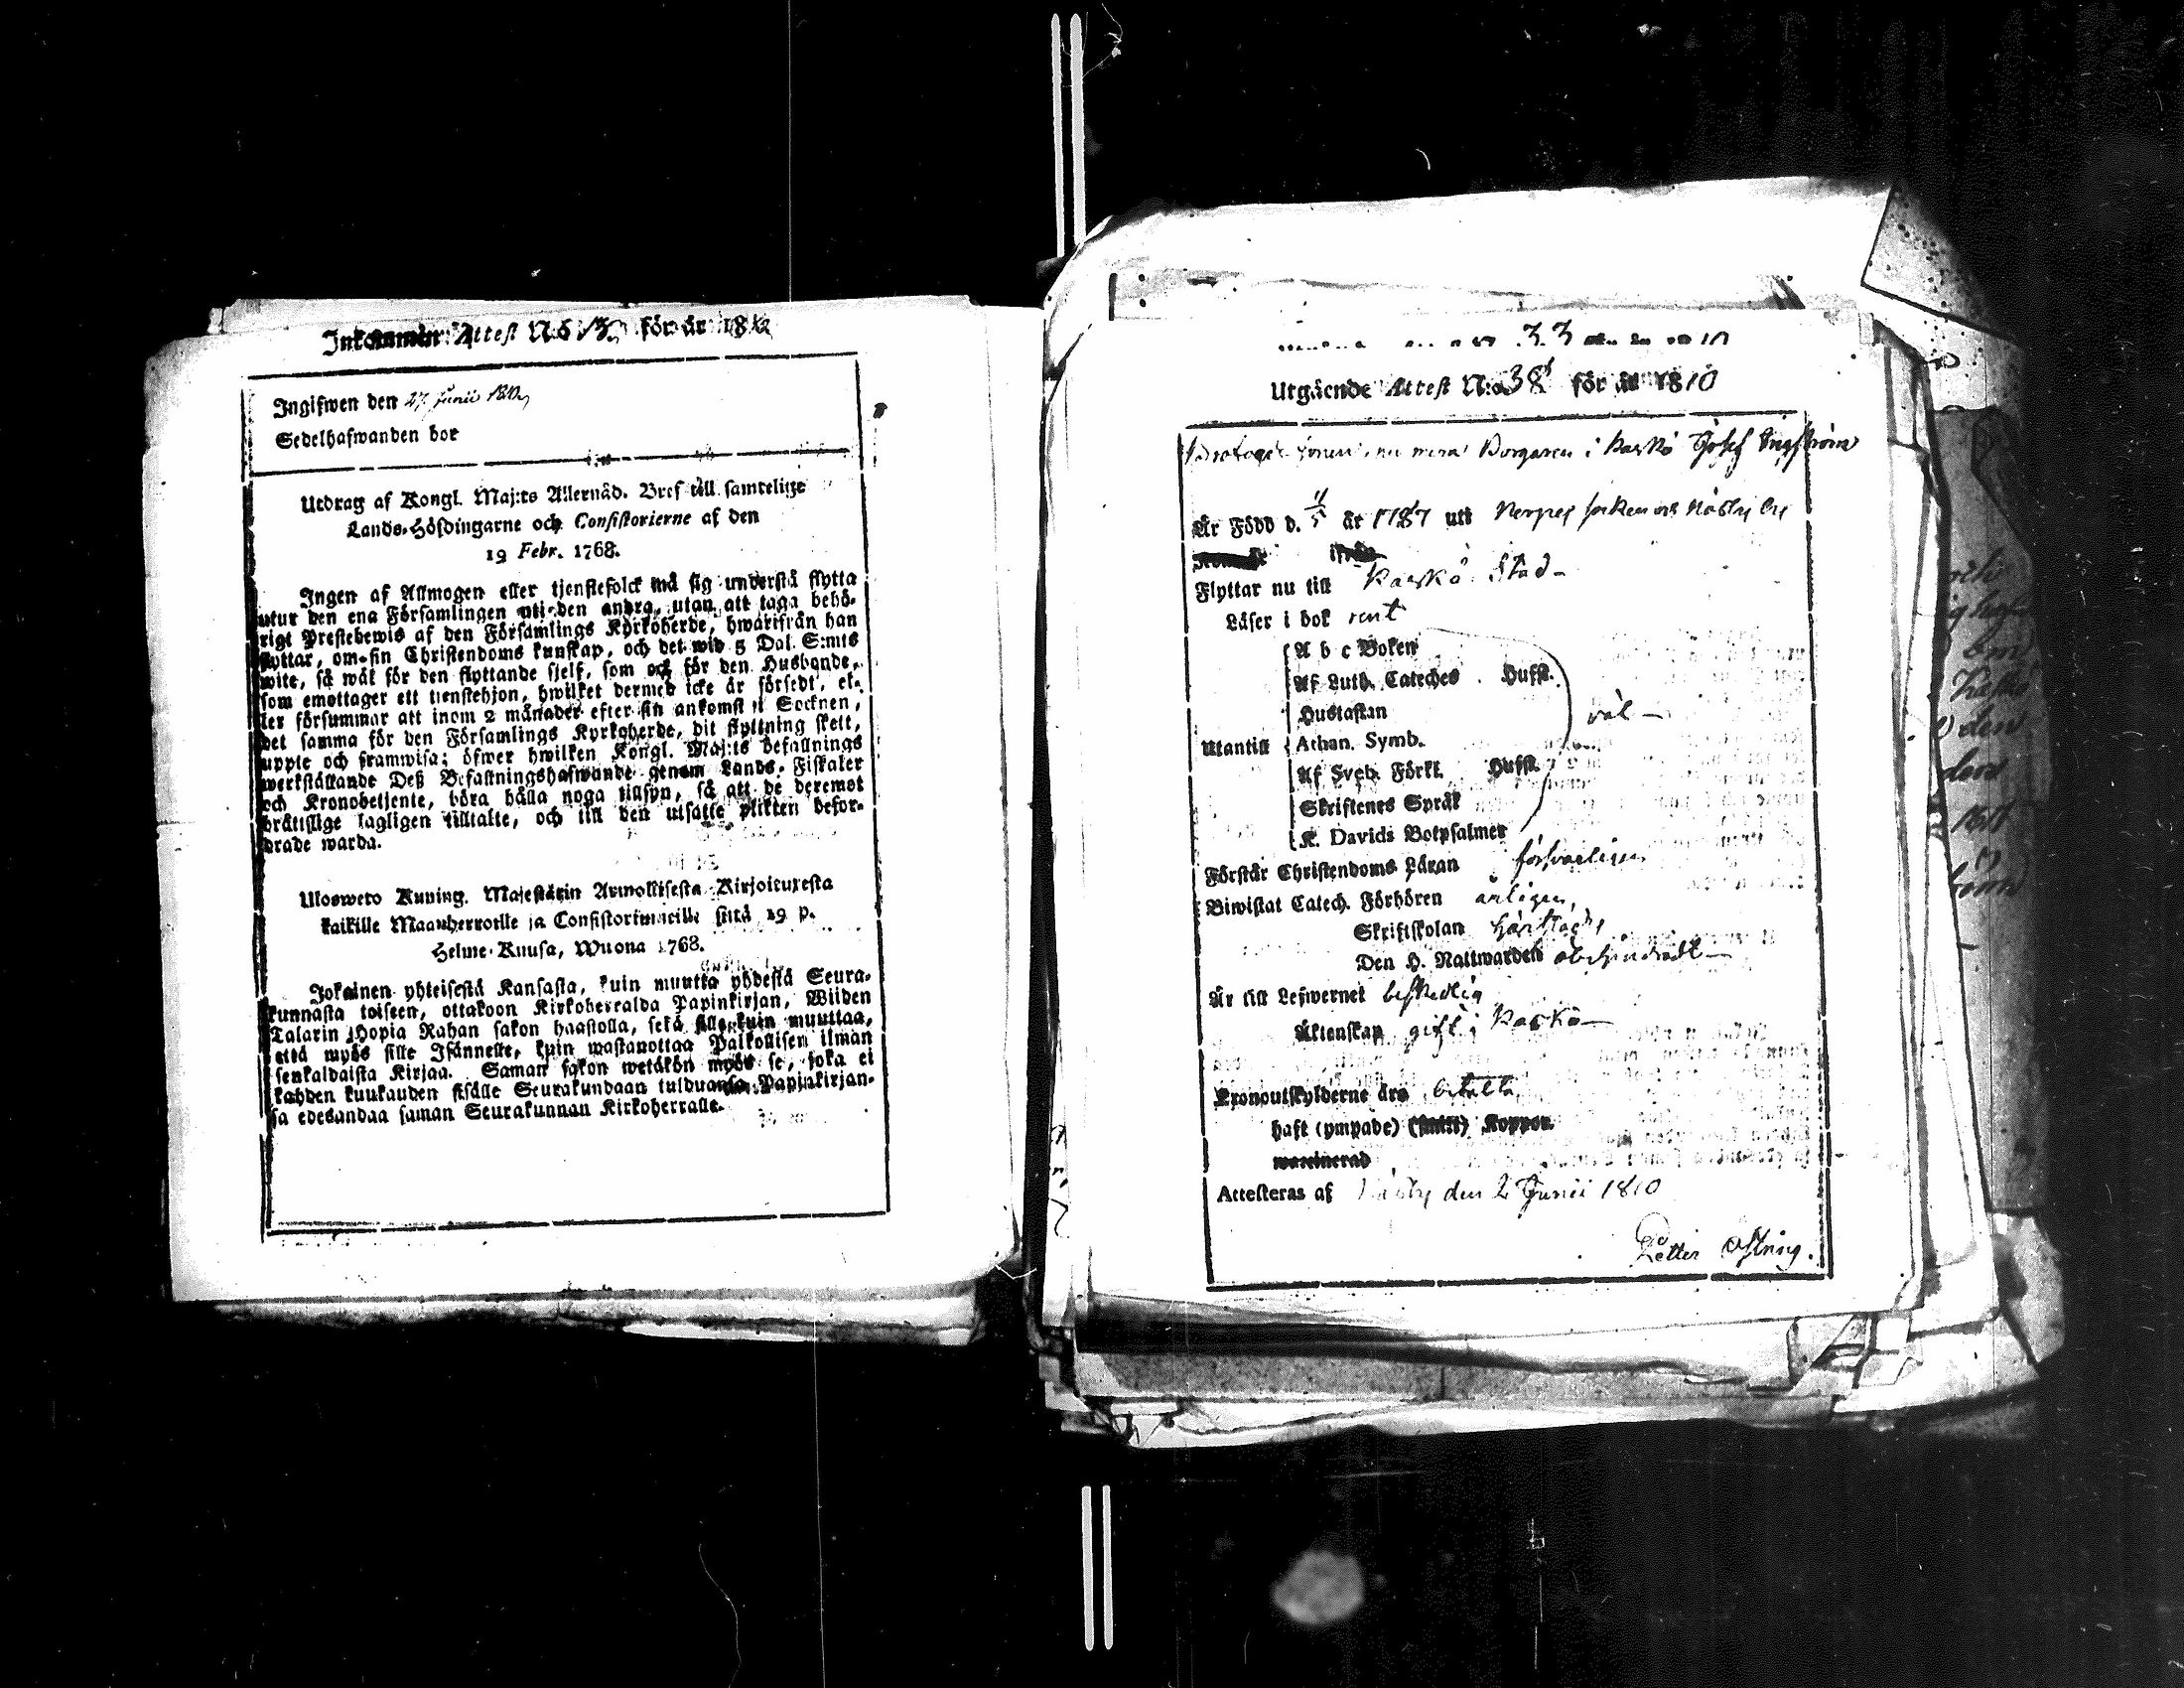 Inkommin Attest N:o 13 för år 18
Ingifwen den 27 Junii 1810
Sedelhafwanden bor
Utdrag af Kongl. Maj:ts Allernåd. Bref till samtelige
Lands-Höfdingarne och Consistorierne af den
19 Febr. 1768.
Ingen af Allmogen eller tjenstefolck må sig understå flytta
utur den ena Församlingen uti den andra, utan att taga behö-
rigt Prestebewis af den Församlings Kyrkoherde, hwarifrån han
flyttar, om sin Christendoms kunskap, och det wid 5 Dal. S:mts
wite, så wäl för den flyttande sjelf, som och för den Husbonde,
som emottager ett tienstehjon, hwilket dermed icke är försedt, el-
ler försummar att inom 2 månader efter sin ankomst i Socknen,
det samma för den Församlings Kyrkoherde, dit flyttning skett,
uppte och framwisa; öfwer hwilken Kongl. Maj:ts befallnings
werkställande Deß Befallningshafwande genom Lands-Fiskaler
och Kronobetjente, böra hålla noga tillsyn, så att de deremot
brättslige lagligen tilltalte, och till den utsatte plikten befor-
drade warda.
Ulosweto Kuning. Majestätin Armollisesta Kirjoituxesta
kaikille Maanherroille ja Consistoriumeille siitä 19 p.
Helme-Kuusa, Wuona 1768.
Jokainen yhteisestä Kansasta, kuin muutta yhdestä Seura-
kunnasta toiseen, ottakoon Kirkoherralda Papinkirjan, Wiiden
Talarin Hopia Rahan sakon haastolla, sekä sille kuin muuttaa,
että myös sille Isännelle, kuin wastanottaa Palkollisen ilman
senkaldaista Kirjaa. Saman sakon wetäkön myös se, joka ei
kahden kuukauden sisälle Seurakundaan tulduansa Papinkirjan-
sa edesandaa saman Seurakunnan Kirkoherralle.
33
Utgående Attest N:o 38 för år 1810
nu mera Borgaren i Kaskö Josef Engström
Är Född d. 11/5 år 1787 uti Nerpes socken och Näsby by
Flyttar nu till Kaskö Stad
Läser i bok rent
A b c Boken
Af Luth. Cateches Hufst.
Hustaflan
Utantill Athan. Symb. väl
Af Sveb. Förkl. Hufst.
Skriftenes Språk
K. Davids Botpsalmer
Förstår Christendoms Läran försvarligen
Biwistat Catech. Förhören årligen,
Skriftskolan härstädes
Den H. Nattwarden obehindradt
Är till Lefwernet beskedlig
Äktenskap gift i Kaskö
Kronoutskylderne äro betalta
haft (ympade) Koppor
waxinerad
Attesteras af Näsby den 2 Junii 1810
Petter Östring.